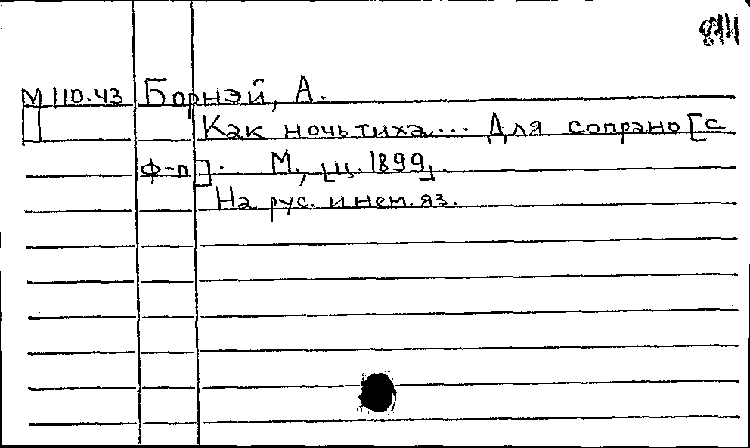 М 110.43 Борнэй, А.
Как ночь тиха... Для сопрано [с
ф-п]. М., [ц. 1899].
На рус. и нем. яз.